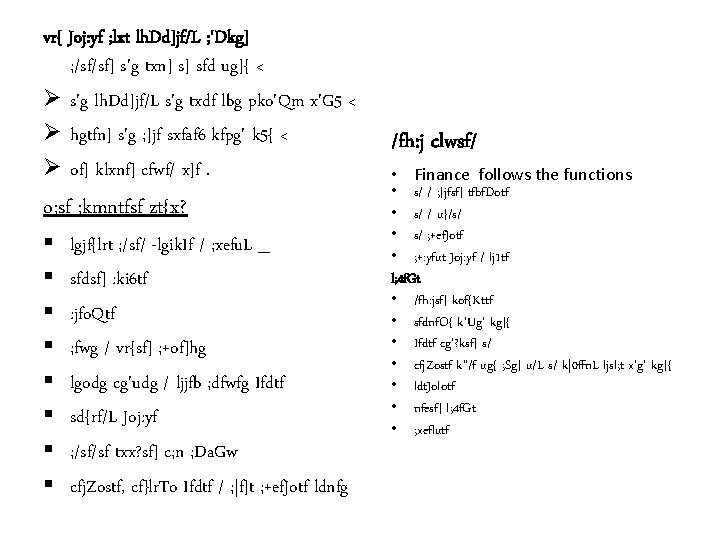 vr{ Joj:yf ;lxt lhDd]jf/L ;'Dkg]
;/sf/sf] s'g txn] s] sfd ug]{ <
➢ s'g lhDd]jf/L s'g txdf lbg pko'Qm x'G5 <
➢ hgtfn] s'g ;]jf sxfaf6 kfpg' k5{ <
➢ of] klxnf] cfwf/ x]f .
o;sf ;kmntfsf zt{x?
▪ lgjf{lrt ;/sf/ -lgikIf / ;xefuL _
▪ sfdsf] :ki6tf
▪ :jfoQtf
▪ ;fwg / vr{sf] ;+of]hg
▪ lgodg cg'udg / ljjfb ;dfwfg Ifdtf
▪ sd{rf/L Joj:yf
▪ ;/sf/sf txx?sf] c;n ;DaGw
▪ cfjZostf, cf}lrTo Ifdtf / ;|f]t ;+efJotf ldnfg
/fh:j clwsf/
• Finance follows the functions
• s/ / ;|jfsf| tfbfDotf
• s/ / u}/s/
• s/ ;+efJotf
• ;+:yfut Joj:yf / ljItf
l;4fGt
• /fh:jsf| kof{Kttf
• sfdnfO{ k'Ug' kg|{
• Ifdtf cg'?ksf| s/
• cfjZostf k"/f ug{ ;Sg| u/L s/ k|0ffnL ljsl;t x'g' kg|{
• ldtJolotf
• nfesf| l;4fGt
• ;xeflutf